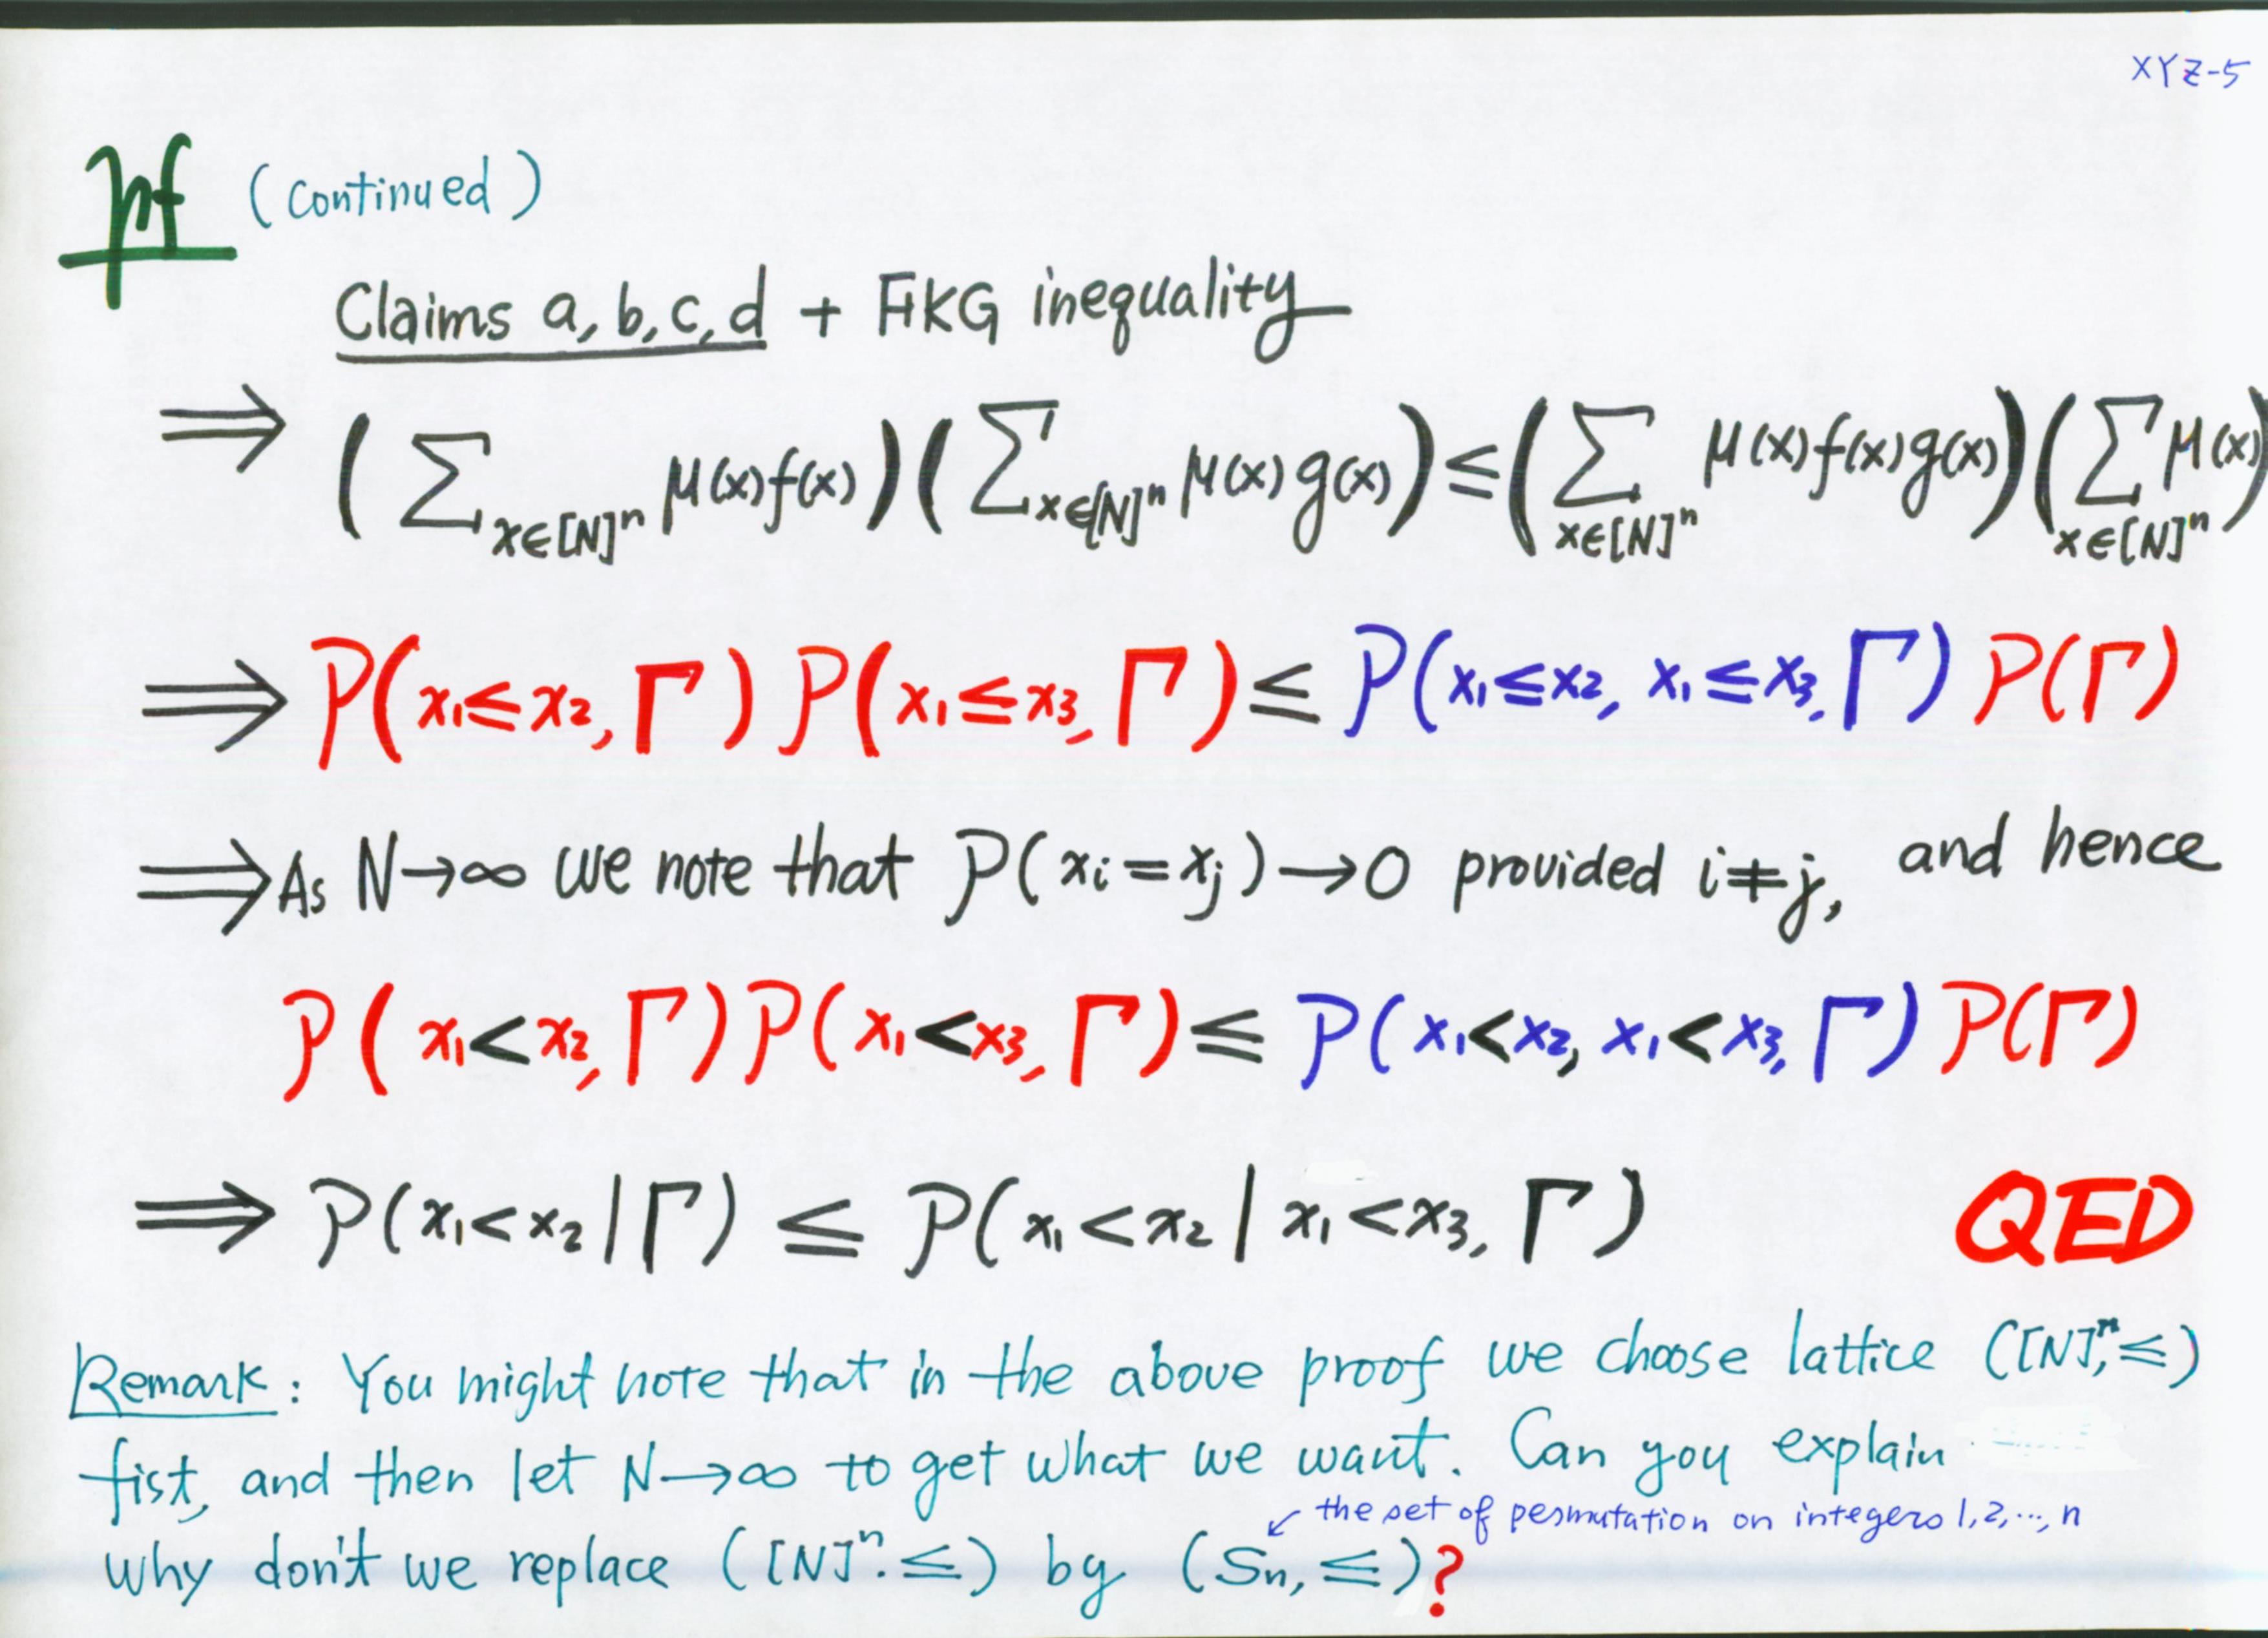 XYZ-5
pf (continued)
Claims a, b, c, d + FKG inequality
⟹ (∑x∈[N]ⁿ μ(x)f(x))(∑x∈[N]ⁿ μ(x)g(x)) ≤ (∑x∈[N]ⁿ μ(x)f(x)g(x))(∑x∈[N]ⁿ μ(x))
⟹ P(x₁≤x₂, Γ) P(x₁≤x₃, Γ) ≤ P(x₁≤x₂, x₁≤x₃, Γ) P(Γ)
⟹ As N→∞ we note that P(xᵢ=xⱼ)→0 provided i≠j, and hence
P(x₁<x₂, Γ) P(x₁<x₃, Γ) ≤ P(x₁<x₂, x₁<x₃, Γ) P(Γ)
⟹ P(x₁<x₂|Γ) ≤ P(x₁<x₂| x₁<x₃, Γ) QED
Remark: You might note that in the above proof we choose lattice ([N]ⁿ, ≤)
fist, and then let N→∞ to get what we want. Can you explain
↙ the set of permutation on integers 1,2,..., n
why don't we replace ([N]ⁿ. ≤) by (Sn, ≤)?